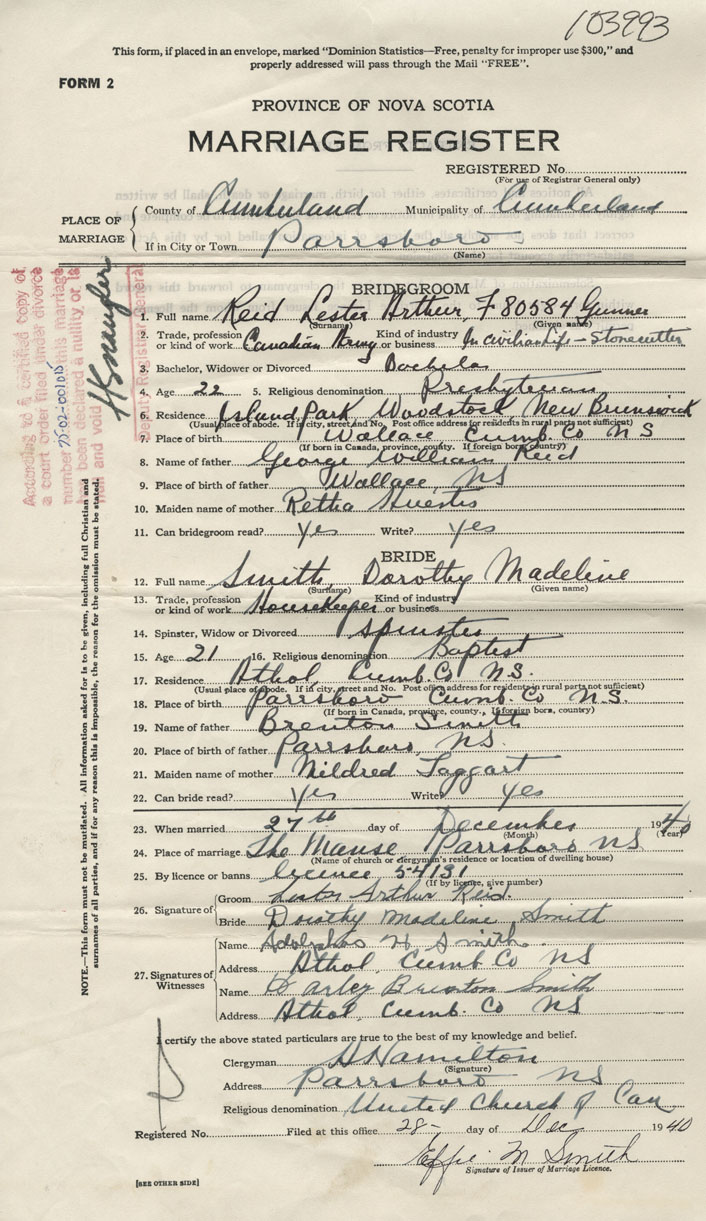 103993
This form, if placed in an envelope, marked "Dominion Statistics—Free, penalty for improper use $300," and
properly addressed will pass through the Mail "FREE".
FORM 2
PROVINCE OF NOVA SCOTIA
MARRIAGE REGISTER
REGISTERED No.
(For use of Registrar General only)
PLACE OF MARRIAGE
County of Cumberland Municipality of Cumberland
If in City or Town Parrsboro
(Name)
BRIDEGROOM
1. Full name Reid Lester Arthur, F80584 Gunner
(Surname) (Given name)
2. Trade, profession or kind of work Canadian Army Kind of industry or business In civilian Life - Stonecutter
3. Bachelor, Widower or Divorced Bachelor
4. Age 22 5. Religious denomination Presbyterian
6. Residence Island Park Woodstock, New Brunswick
(Usual place of abode. If in city, street and No. Post office address for residents in rural parts not sufficient)
7. Place of birth Wallace Cumb. Co N S
(If born in Canada, province, county. If foreign born, country)
8. Name of father George William Reid
9. Place of birth of father Wallace, NS
10. Maiden name of mother Retha Huestis
11. Can bridegroom read? Yes Write? Yes
BRIDE
12. Full name Smith, Dorothy Madeline
(Surname) (Given name)
13. Trade, profession or kind of work Housekeeper Kind of industry or business
14. Spinster, Widow or Divorced Spinster
15. Age 21 16. Religious denomination Baptist
17. Residence Athol, Cumb. Co N.S.
(Usual place of abode. If in city, street and No. Post office address for residents in rural parts not sufficient)
18. Place of birth Parrsboro Cumb. Co N.S
(If born in Canada, province, county., If foreign born, country)
19. Name of father Brenton Smith
20. Place of birth of father Parrsboro, NS.
21. Maiden name of mother Mildred Taggart
22. Can bride read? Yes Write? Yes
23. When married 27th day of December 1940
(Month) (Year)
24. Place of marriage The Manse Parrsboro NS
(Name of church or clergyman's residence or location of dwelling house)
25. By licence or banns licence 54131
(If by licence, give number)
26. Signature of
Groom Lester Arthur Reid.
Bride Dorothy Madeline Smith
27. Signatures of Witnesses
Name Adolphus H Smith
Address Athol, Cumb. Co NS
Name Brenton Smith
Address Athol, Cumb. Co NS
I certify the above stated particulars are true to the best of my knowledge and belief.
Clergyman Hamilton
(Signature)
Address Parrsboro NS
Religious denomination United Church of Can
Registered No. Filed at this office 28- day of Dec 1940
Effie M Smith
Signature of Issuer of Marriage Licence.
[SEE OTHER SIDE]
NOTE.—This form must not be mutilated. All information asked for is to be given, including full Christian and
surnames of all parties, and if for any reason this is impossible, the reason for the omission must be stated.
According to a certified copy of
a court order filed under divorce
number this marriage
has been declared a nullity or is
null and void
Deputy Registrar General